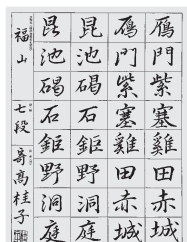 雁門紫塞雞田赤城
雁門紫塞雞田赤城
昆池碣石鉅野洞庭
昆池碣石鉅野洞庭
福山 七段 高桂子